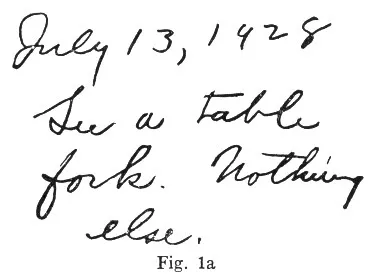 July 13, 1928
See a table
fork. Nothing
else.
Fig. 1a